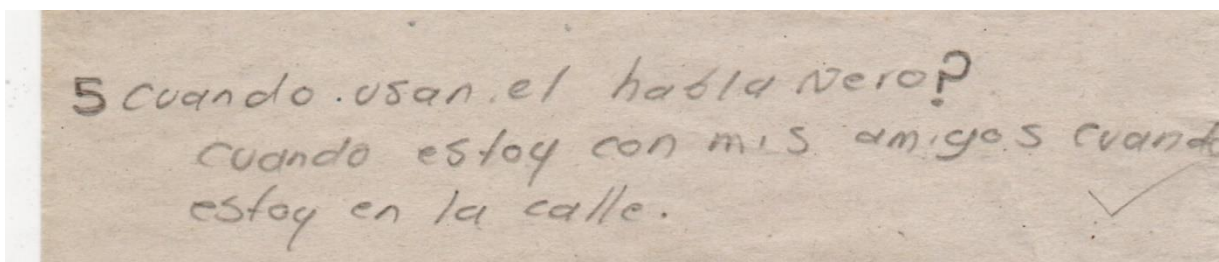 5 cuando usan el habla Nero?
cuando estoy con mis amigos cuando
estoy en la calle.